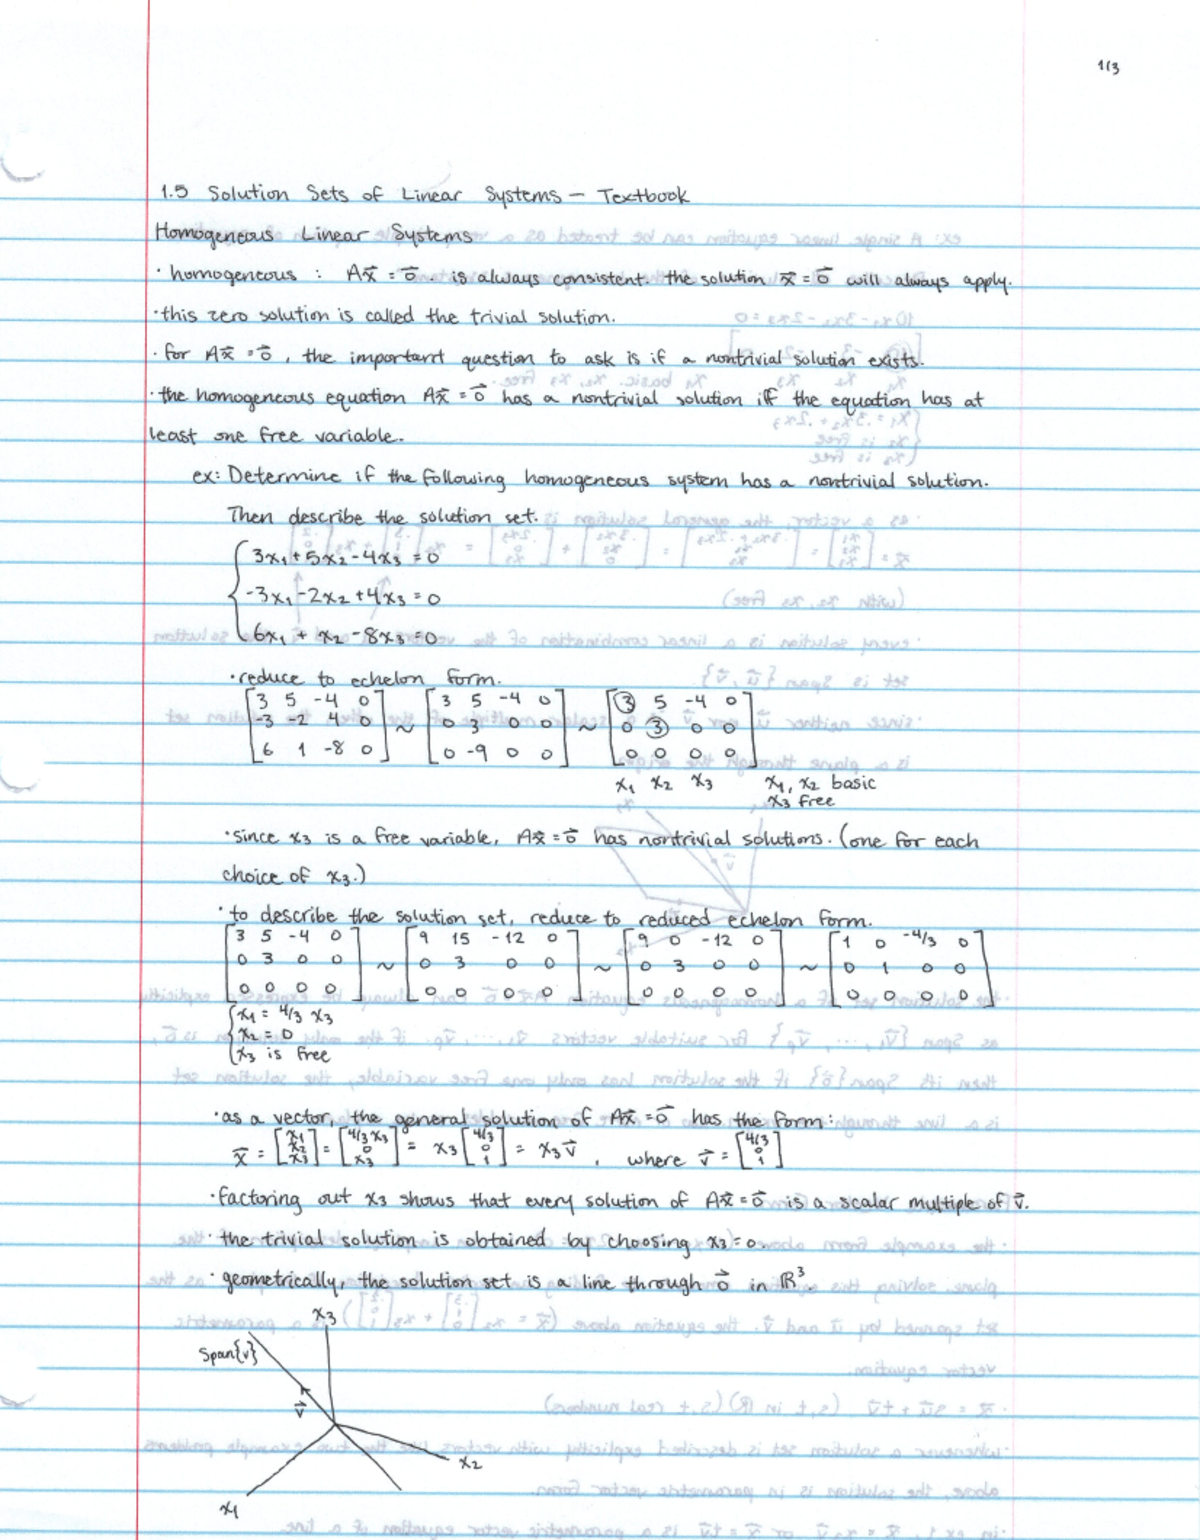 1/3
1.5 Solution Sets of Linear Systems — Textbook
Homogeneous Linear Systems
· homogeneous : Ax⃗ = 0⃗. is always consistent. the solution x⃗ = 0⃗ will always apply.
· this zero solution is called the trivial solution.
· for Ax⃗ = 0⃗, the important question to ask is if a nontrivial solution exists.
· the homogeneous equation Ax⃗ = 0⃗ has a nontrivial solution iff the equation has at
least one free variable.
ex: Determine if the following homogeneous system has a nontrivial solution.
Then describe the solution set.
3x₁ + 5x₂ - 4x₃ = 0
-3x₁ - 2x₂ + 4x₃ = 0
6x₁ + x₂ - 8x₃ = 0
· reduce to echelon form.
[3 5 -4 0] [3 5 -4 0] [③ 5 -4 0]
[-3 -2 4 0] ~ [0 3 0 0] ~ [0 ③ 0 0]
[6 1 -8 0] [0 -9 0 0] [0 0 0 0]
x₁ x₂ x₃ x₁, x₂ basic
x₃ free
· since x₃ is a free variable, Ax⃗ = 0⃗ has nontrivial solutions. (one for each
choice of x₃.)
· to describe the solution set, reduce to reduced echelon form.
[3 5 -4 0] [9 15 -12 0] [9 0 -12 0] [1 0 -4/3 0]
[0 3 0 0] ~ [0 3 0 0] ~ [0 3 0 0] ~ [0 1 0 0]
[0 0 0 0] [0 0 0 0] [0 0 0 0] [0 0 0 0]
x₁ = 4/3 x₃
x₂ = 0
x₃ is free
· as a vector, the general solution of Ax⃗ = 0⃗ has the form:
x⃗ = [x₁ x₂ x₃] = [4/3 x₃ 0 x₃] = x₃ [4/3 0 1] = x₃v⃗, where v⃗ = [4/3 0 1]
· factoring out x₃ shows that every solution of Ax⃗ = 0⃗ is a scalar multiple of v⃗.
· the trivial solution is obtained by choosing x₃ = 0.
· geometrically, the solution set is a line through 0⃗ in ℝ³.
x₃
Span{v}
v⃗
x₂
x₁